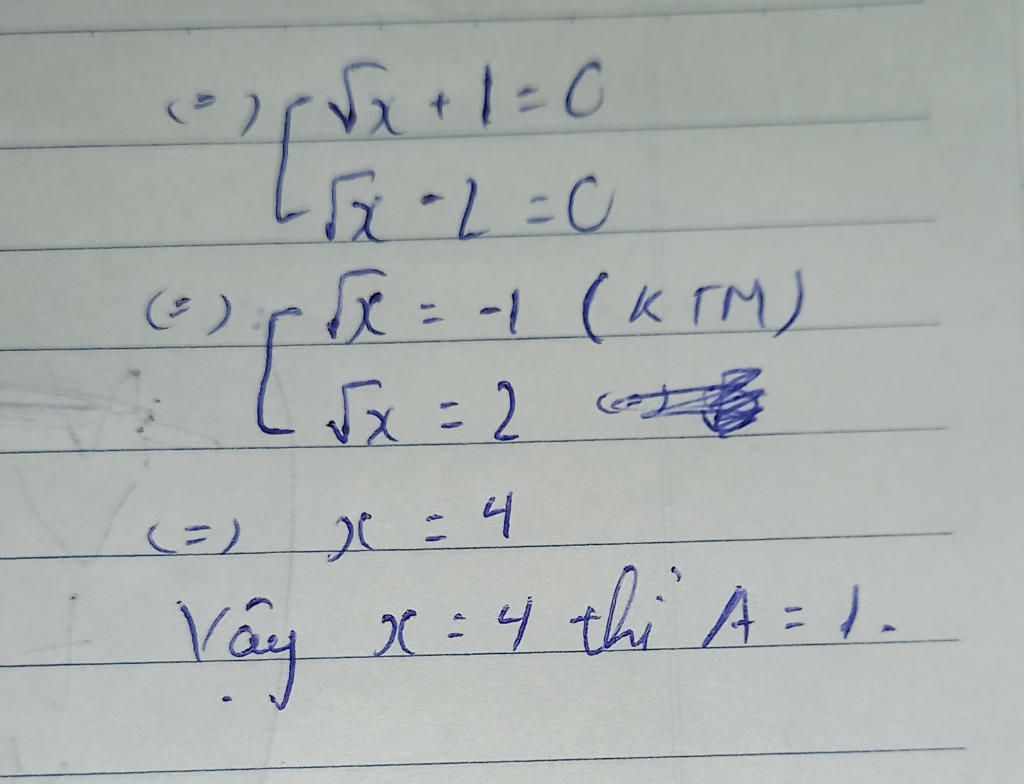 (=) [ √x + 1 = 0
√x - 2 = 0
(=) [ √x = -1 (KTM)
√x = 2 (=)
(=) x = 4
Vậy x = 4 thì A = 1.